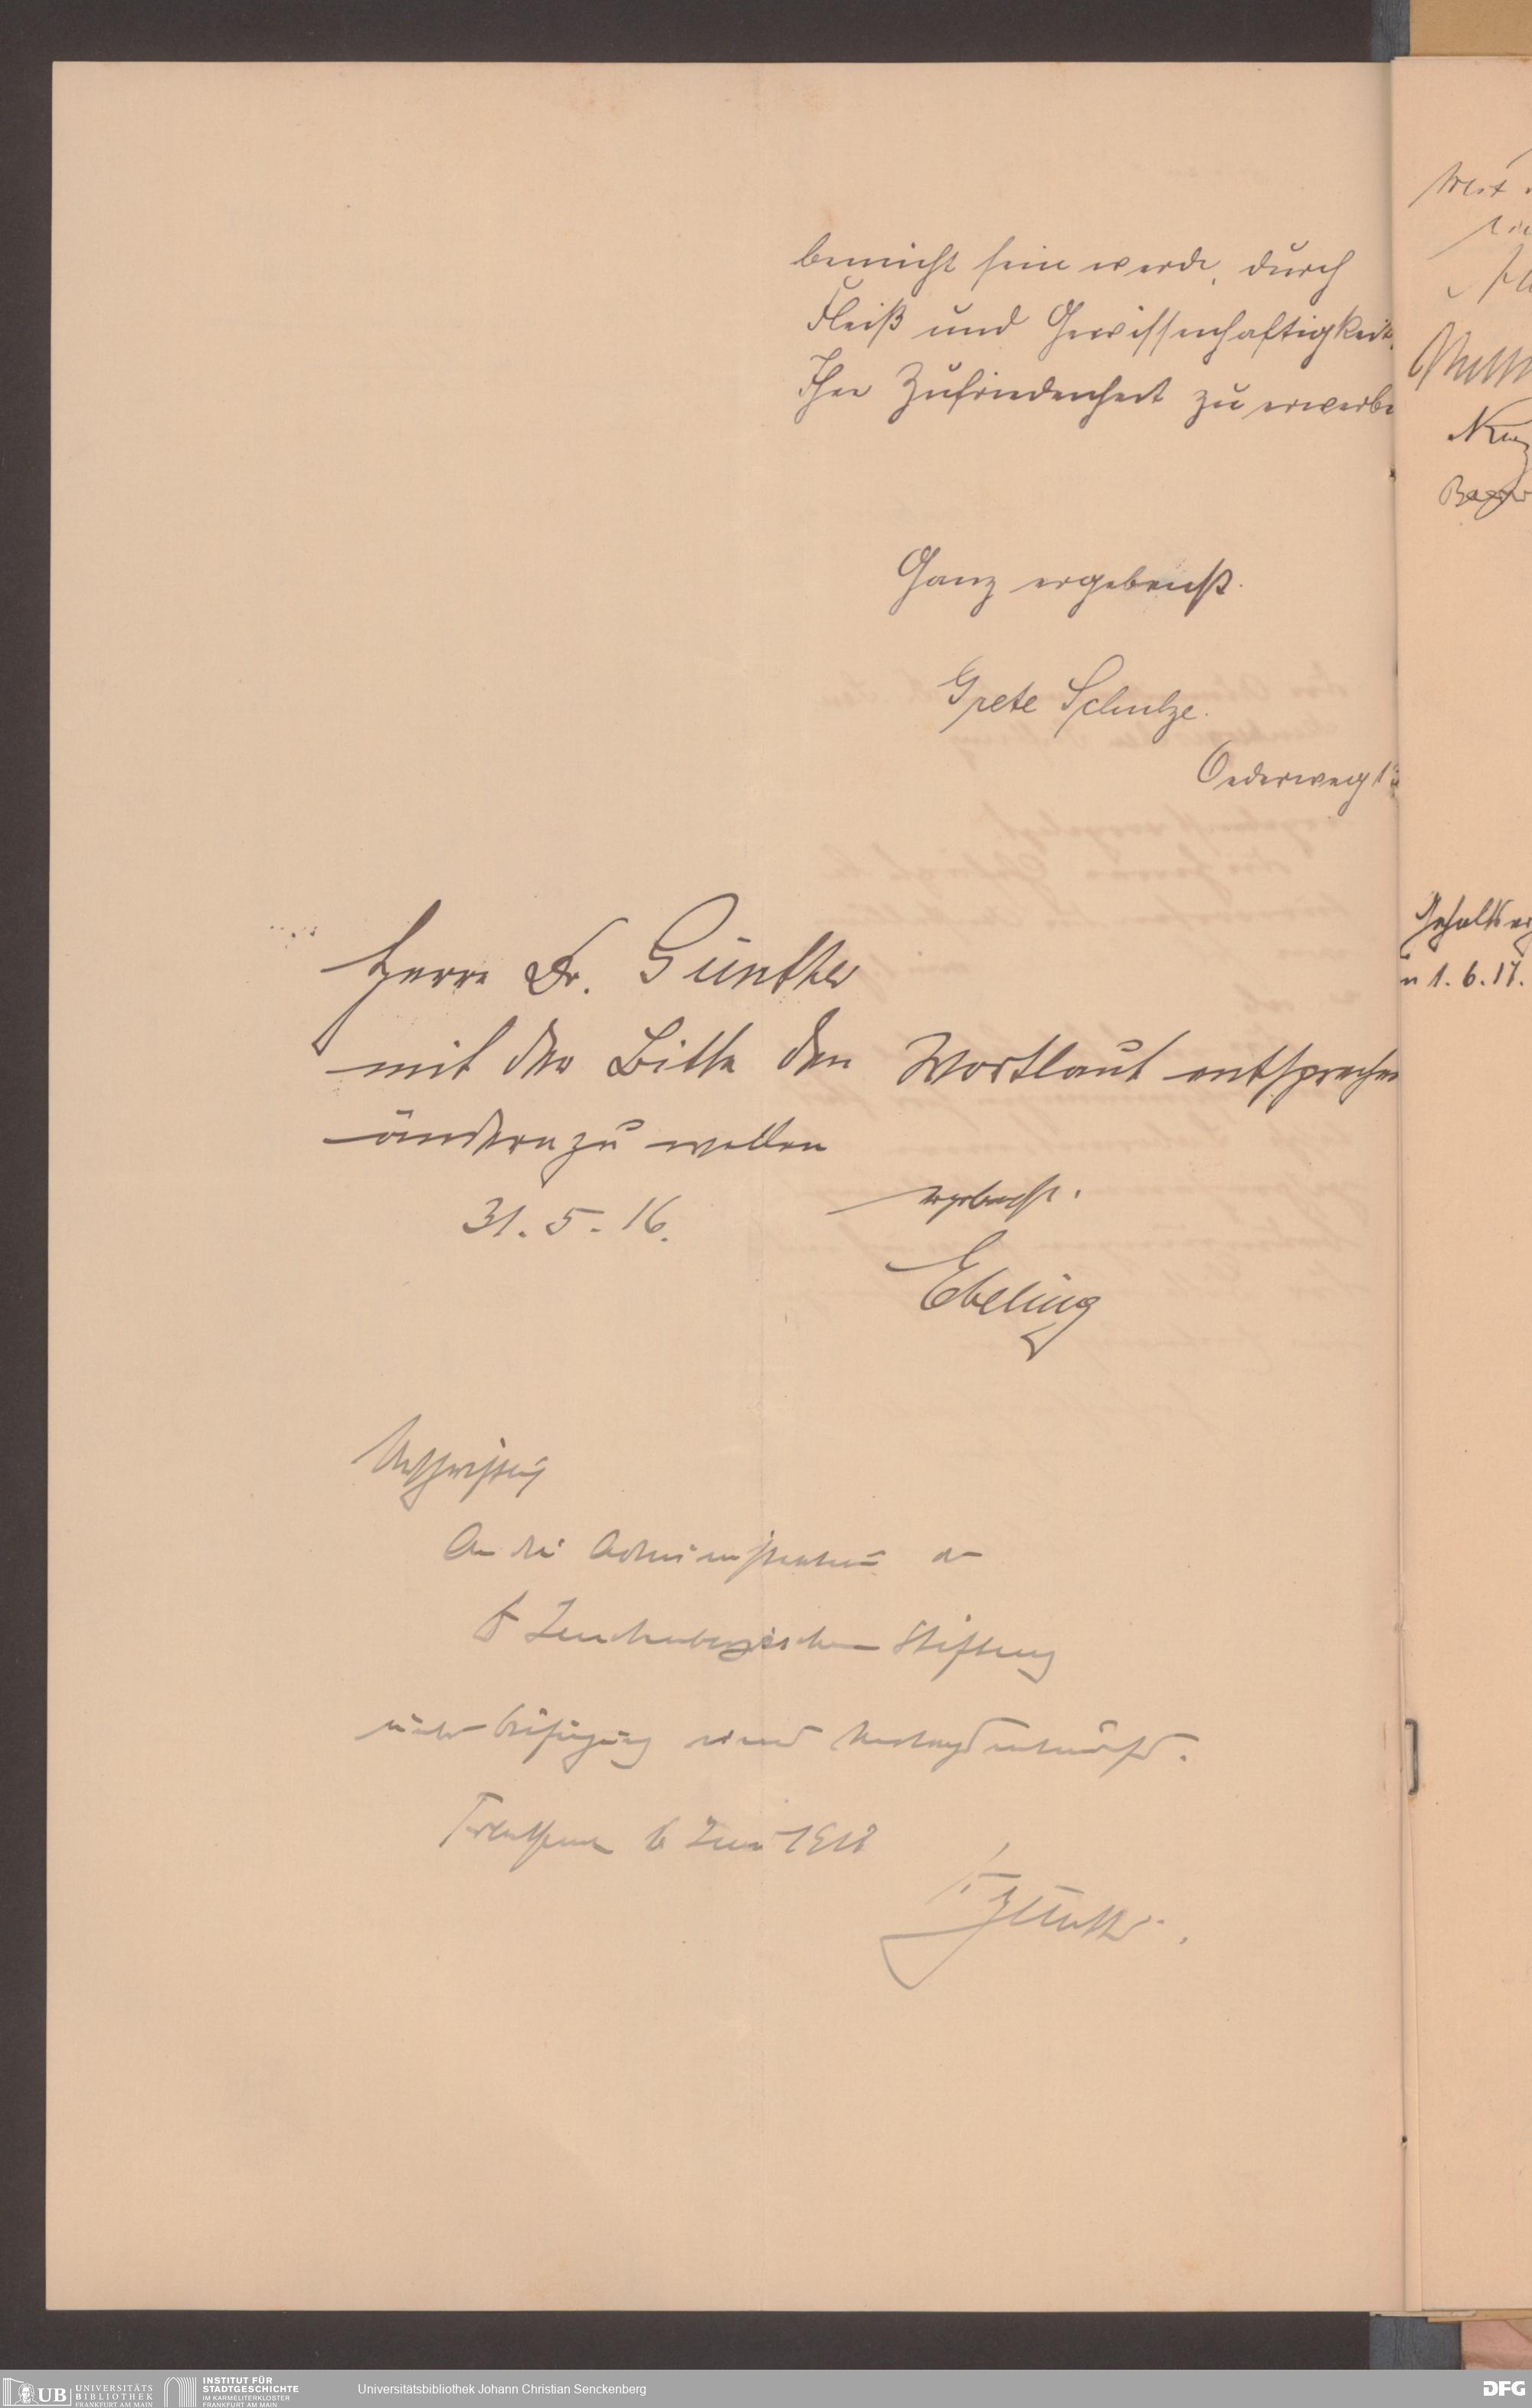 bemüht sein werde, durch
Fleiß und Gewissenhaftigkeit,
Ihre Zufriedenheit zu erwerbe
Ganz ergebenst.
Grete Schulze.
Oederweg 1
Herrn Dr. Günther
mit der Bitte den Wortlaut entsprechen
ändern zu wollen
31. 5. 16.
ergebenst.
Ebeling
Urschriftlich
An die Administration der
Dr Senckenbergischen Stiftung
unter Beifügung eines Vertragsentwurfs.
6 Juni 191
Günther.
Gehalts
1. 6. 17.
UB UNIVERSITÄTS
BIBLIOTHEK
FRANKFURT AM MAIN
INSTITUT FÜR
STADTGESCHICHTE
IM KARMELITERKLOSTER
FRANKFURT AM MAIN
Universitätsbibliothek Johann Christian Senckenberg
DFG